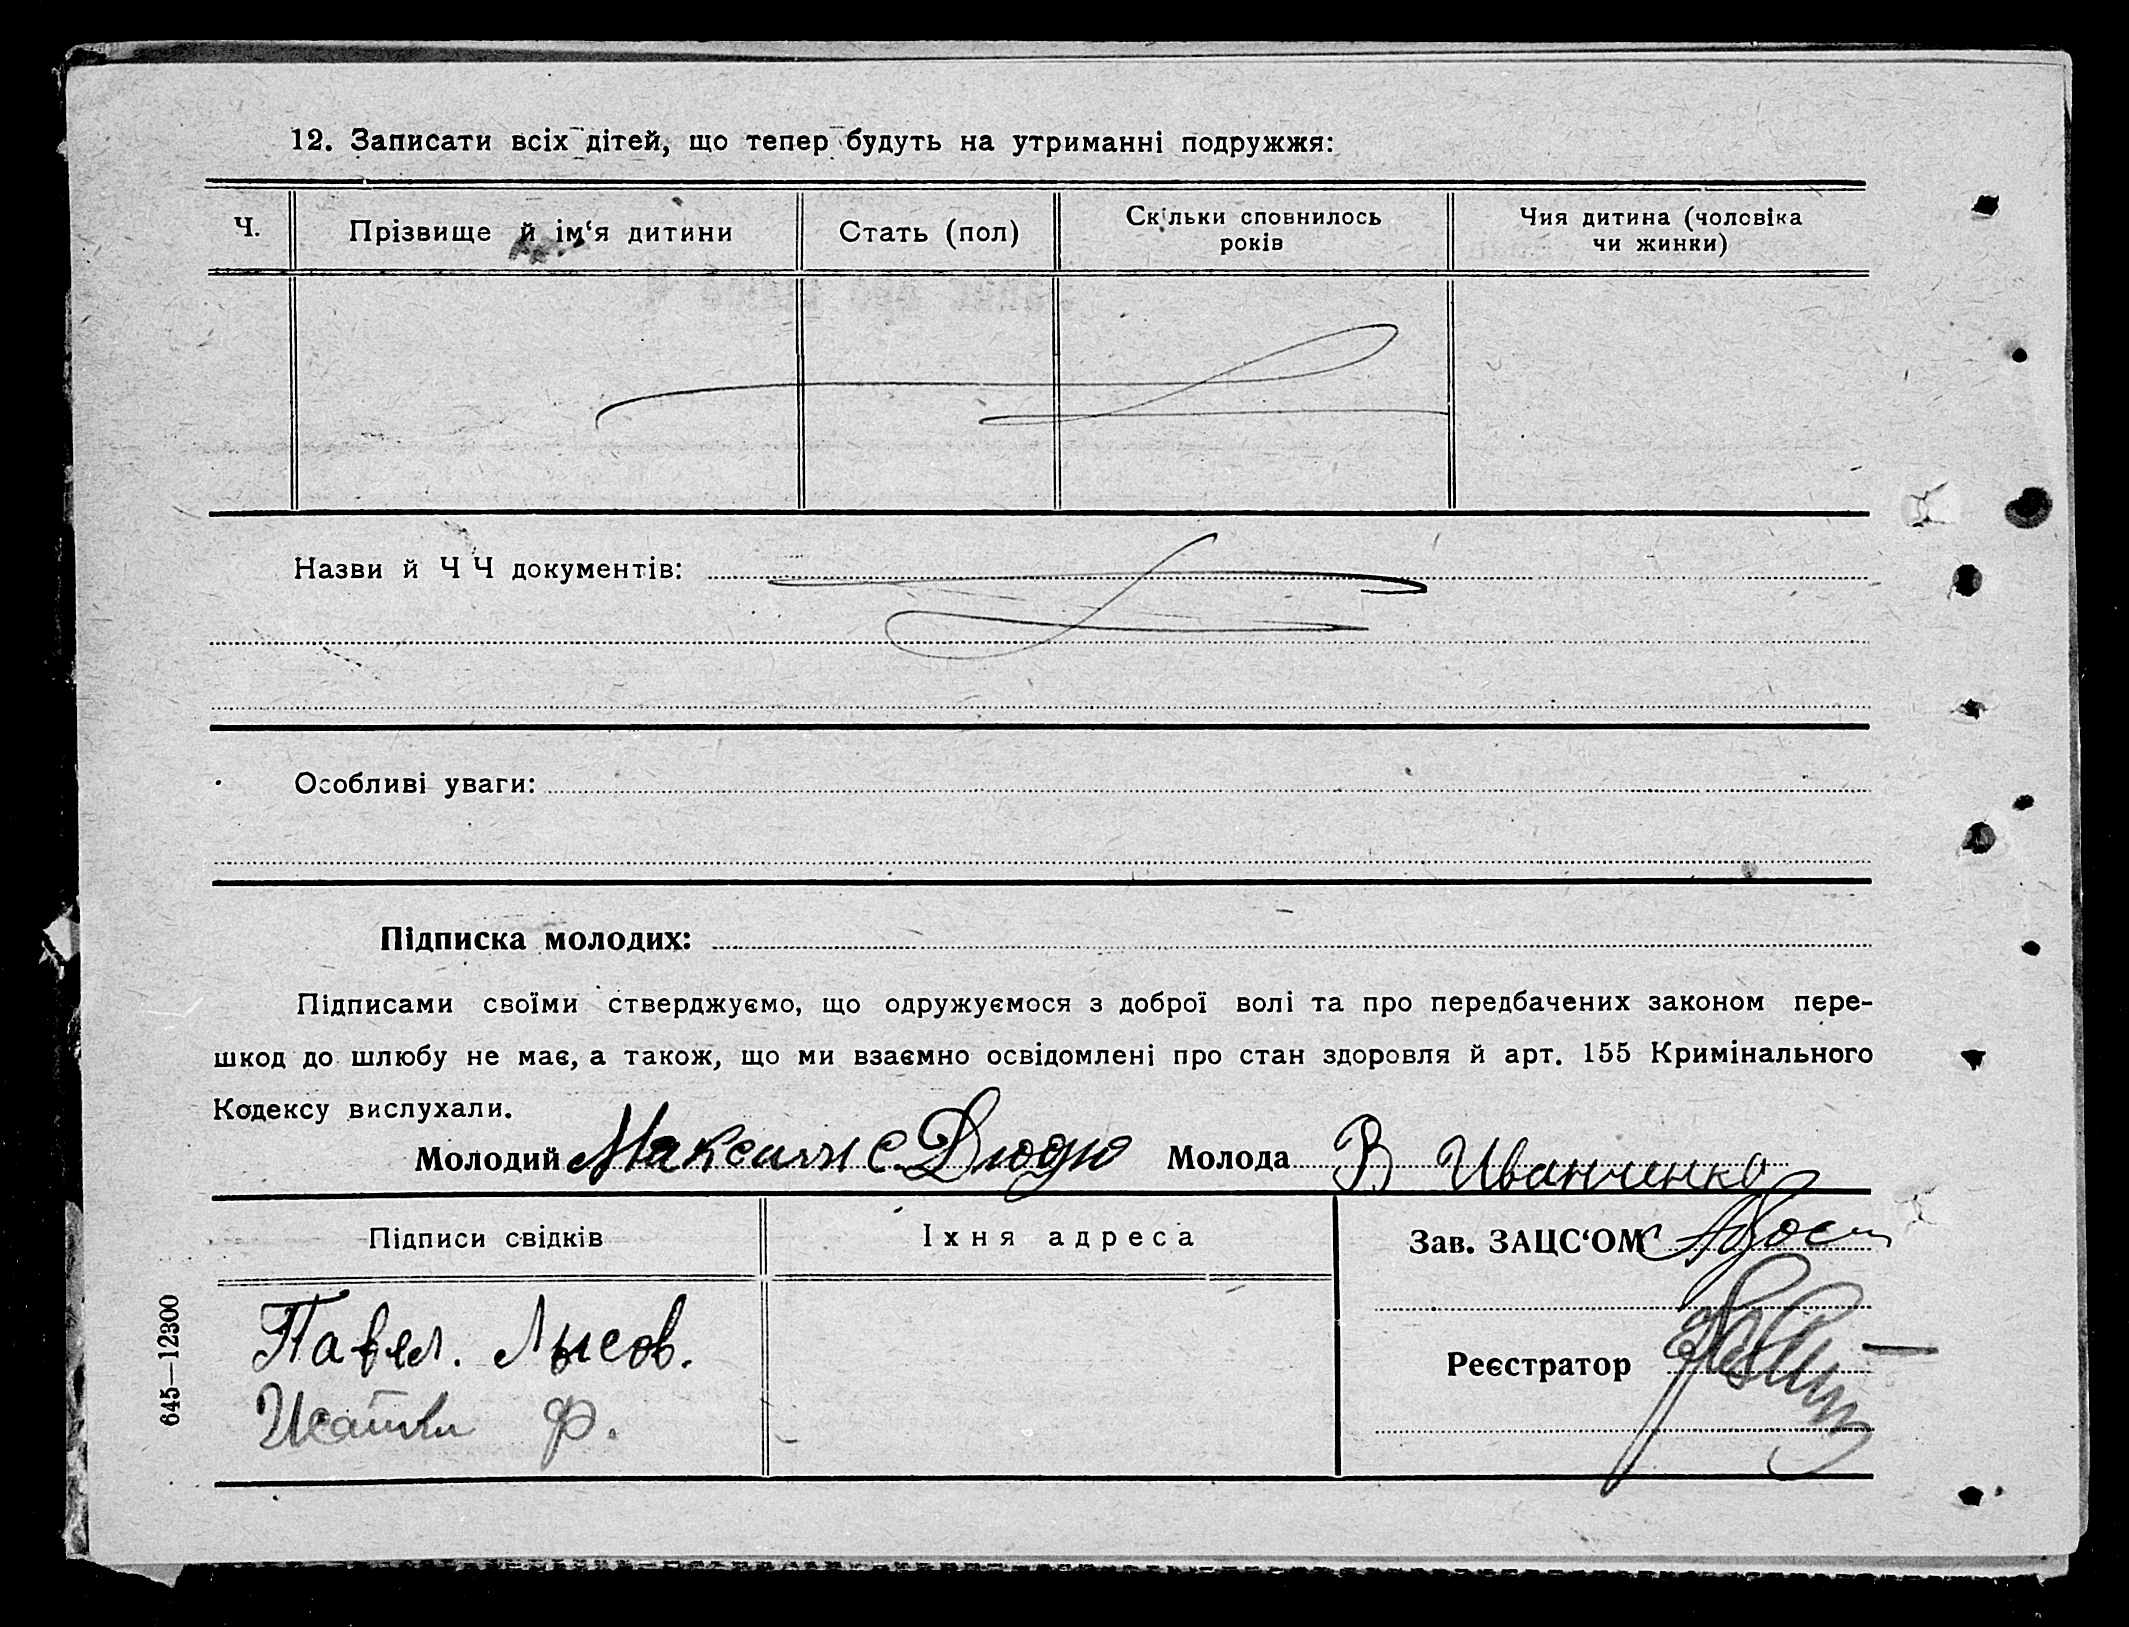 12. Записати всіх дітей, що тепер будуть на утриманні подружжя:
Ч.
Прізвище й ім‘я дитини
Стать (пол)
Скільки сповнилось
років
Чия дитина (чоловіка
чи жинки)
Назви й Ч Ч документів:
Особливі уваги:
Підписка молодих:
Підписами своїми стверджуємо, що одружуємося з доброї волі та про передбачених законом пере-
шкод до шлюбу не має, а також, що ми взаємно освідомлені про стан здоровля й арт. 155 Кримінального
Кодексу вислухали.
Молодий Максим С. Дюдю Молода В Иванченко
Підписи свідків
Їхня адреса
Зав. ЗАЦС‘ОМ
Павел. Лысов.
Ф.
Реєстратор
645—12300